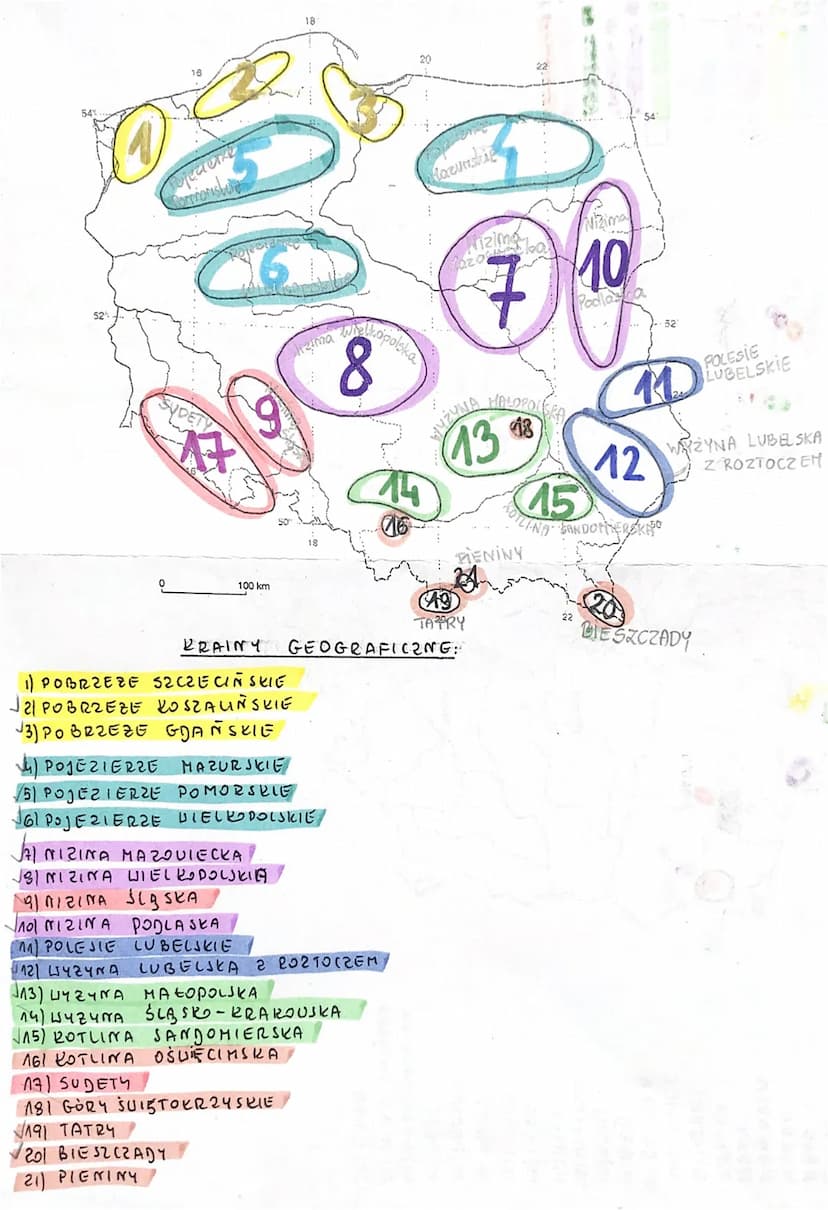 18
16
20
22
54°
54°
1
2
3
5
Pojezierze
Pomorskie
4
Pojezierze
Mazurskie
6
Pojezierze
Wielkopolskie
7
Nizina
Mazowiecka
10
Nizina
Podlaska
52°
52°
8
Nizina Wielkopolska
11
POLESIE
LUBELSKIE
24
17
SUDETY
16
9
WYŻYNA MAŁOPOLSKA
13
18
12
WYŻYNA LUBELSKA
Z ROZTOCZEM
14
15
KOTLINA SANDOMIERSKA
50°
50
16
18
PIENINY
21
19
TATRY
20
22
BIESZCZADY
0 100 km
KRAINY GEOGRAFICZNE:
1) POBRZEŻE SZCZECIŃSKIE
2) POBRZEŻE KOSZALIŃSKIE
3) POBRZEŻE GDAŃSKIE
4) POJEZIERZE MAZURSKIE
5) POJEZIERZE POMORSKIE
6) POJEZIERZE WIELKOPOLSKIE
7) NIZINA MAZOWIECKA
8) NIZINA WIELKOPOLSKA
9) NIZINA ŚLĄSKA
10) NIZINA PODLASKA
11) POLESIE LUBELSKIE
12) WYŻYNA LUBELSKA Z ROZTOCZEM
13) WYŻYNA MAŁOPOLSKA
14) WYŻYNA ŚLĄSKO-KRAKOWSKA
15) KOTLINA SANDOMIERSKA
16) KOTLINA OŚWIĘCIMSKA
17) SUDETY
18) GÓRY ŚWIĘTOKRZYSKIE
19) TATRY
20) BIESZCZADY
21) PIENINY